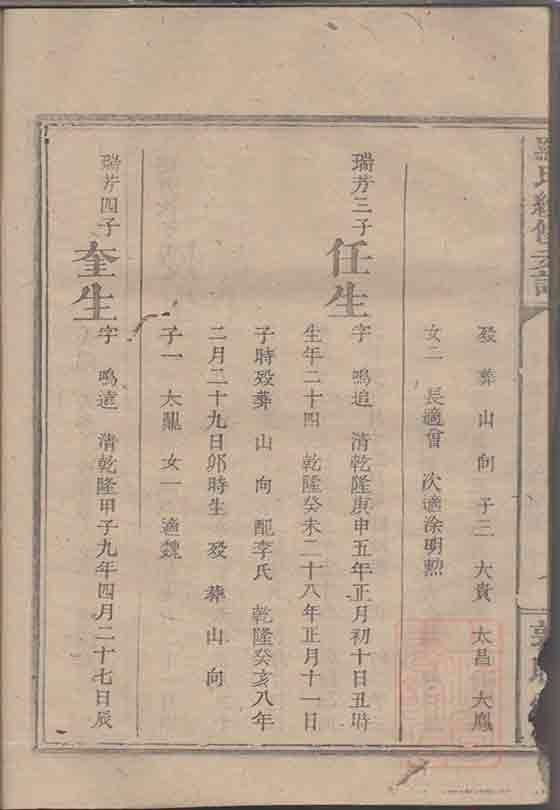 氏續修支譜
歿 葬 山 向 子三 大賓 大昌 大鳳
女二 長適曾 次適涂明勲
瑞芳三子
任生
字 鳴追 清乾隆庚申五年正月初十日丑時
生年二十四 乾隆癸未二十八年正月十一日
子時歿葬 山 向 配李氏 乾隆癸亥八年
二月二十九日卯時生 歿 葬 山 向
子一 大龍 女一 適魏
瑞芳四子
奎生
字 鳴遠 清乾隆甲子九年四月二十七日辰